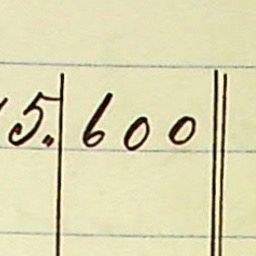 5. 600